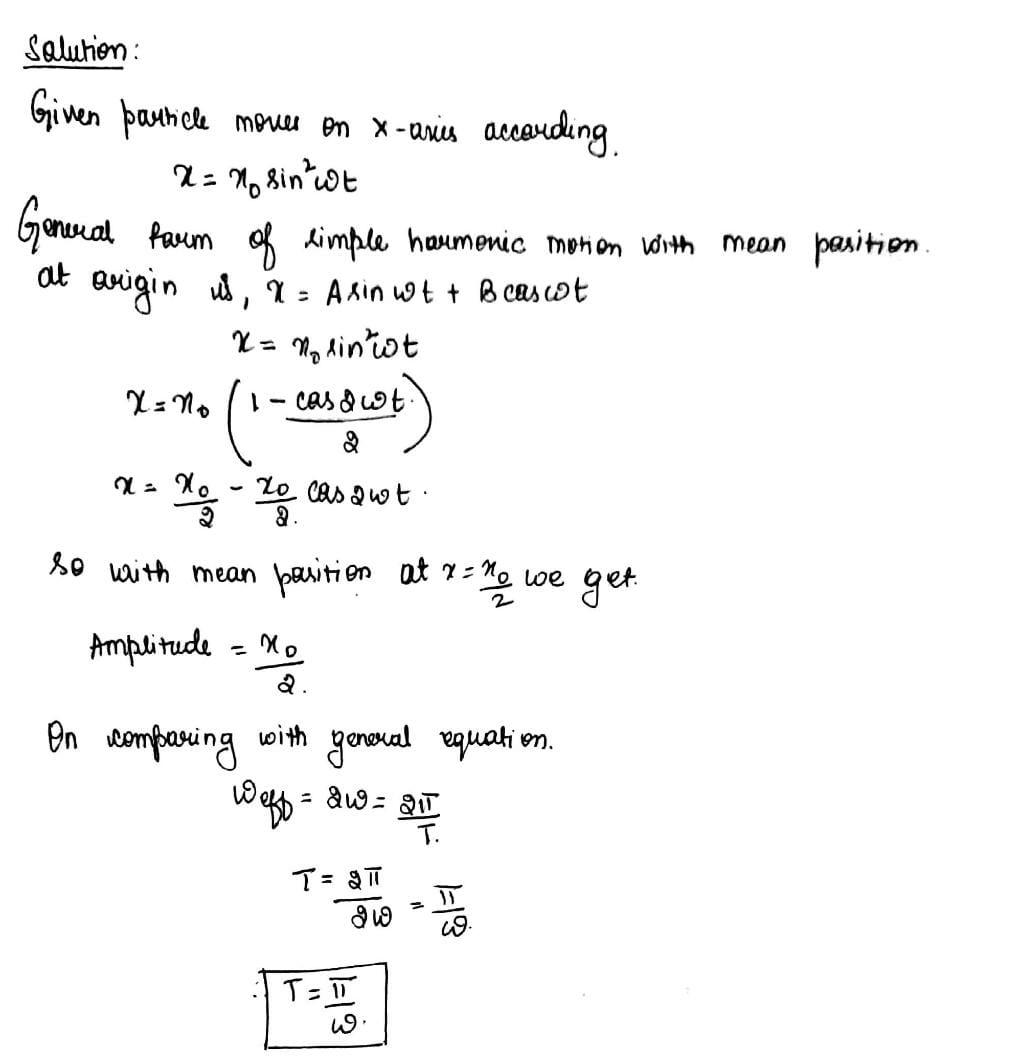 Solution:
Given particle moves on x-axis according.
x = x₀ sin²ωt
General form of simple harmonic motion with mean position.
at origin is, x = A sin ωt + B cos ωt
x = x₀ sin²ωt
x = x₀ (1 - cos 2ωt / 2)
x = x₀/2 - x₀/2 cos 2ωt.
So with mean position at x = x₀/2 we get.
Amplitude = x₀/2.
On comparing with general equation.
ω eff = 2ω = 2π/T.
T = 2π/2ω = π/ω.
∴ T = π/ω.